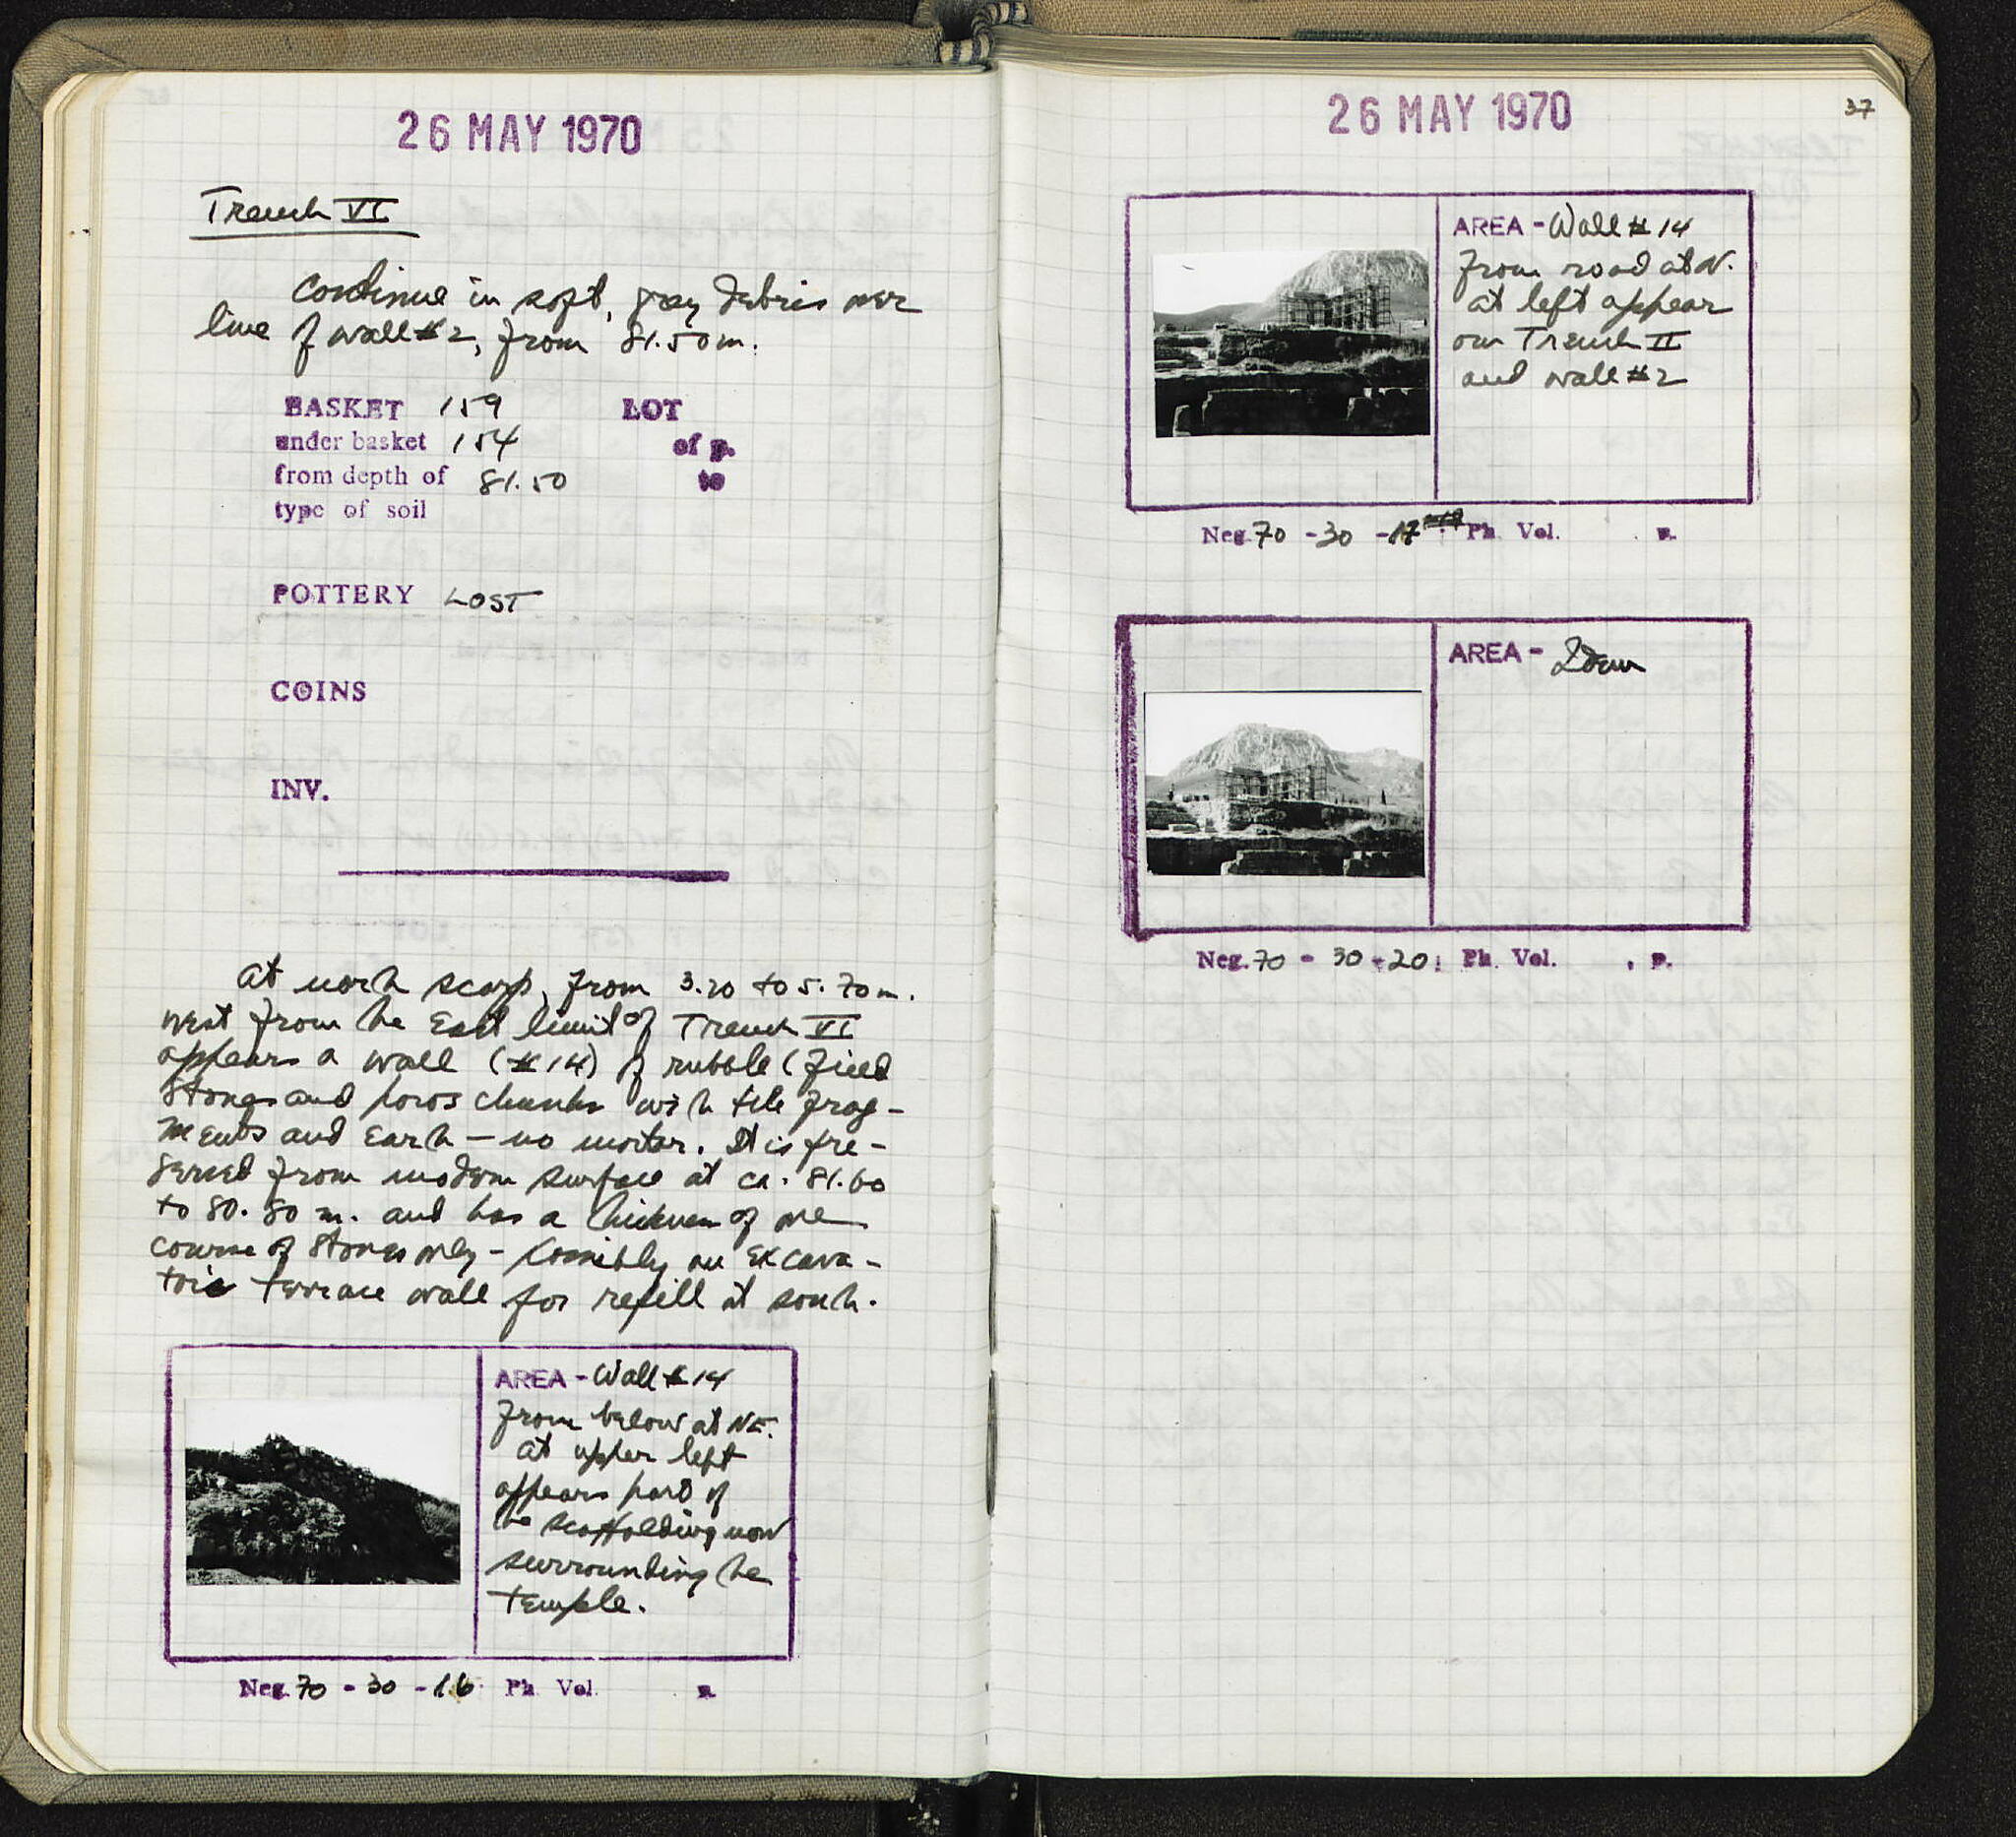 26 MAY 1970
Trench VI
Continue in soft, gray debris over
line of wall #2, from 81.50 m.
BASKET 159 LOT
under basket 154 of p.
from depth of 81.50 to
type of soil
POTTERY LOST
COINS
INV.
At north scarp, from 3.20 to 5.70 m.
west from the East limit of Trench VI
appears a wall (#14) of rubble (field
stones and poros chunks with tile frag-
ments and earth – no mortar. It is pre-
served from modern surface at ca. 81.60
to 80.80 m. and has a thickness of one
course of stones only – possibly an excava-
tor's terrace wall for refill at south.
AREA - Wall #14
from below at NE.
at upper left
appears part of
the scaffolding now
surrounding the
temple.
Neg. 70 - 30 - 16 Ph. Vol. p.
26 MAY 1970
37
AREA - Wall #14
from road at N.
at left appear
our Trench II
and wall #2
Neg. 70 - 30 - 17 Ph. Vol. p.
AREA - Idem
Neg. 70 - 30 - 20 Ph. Vol. , p.